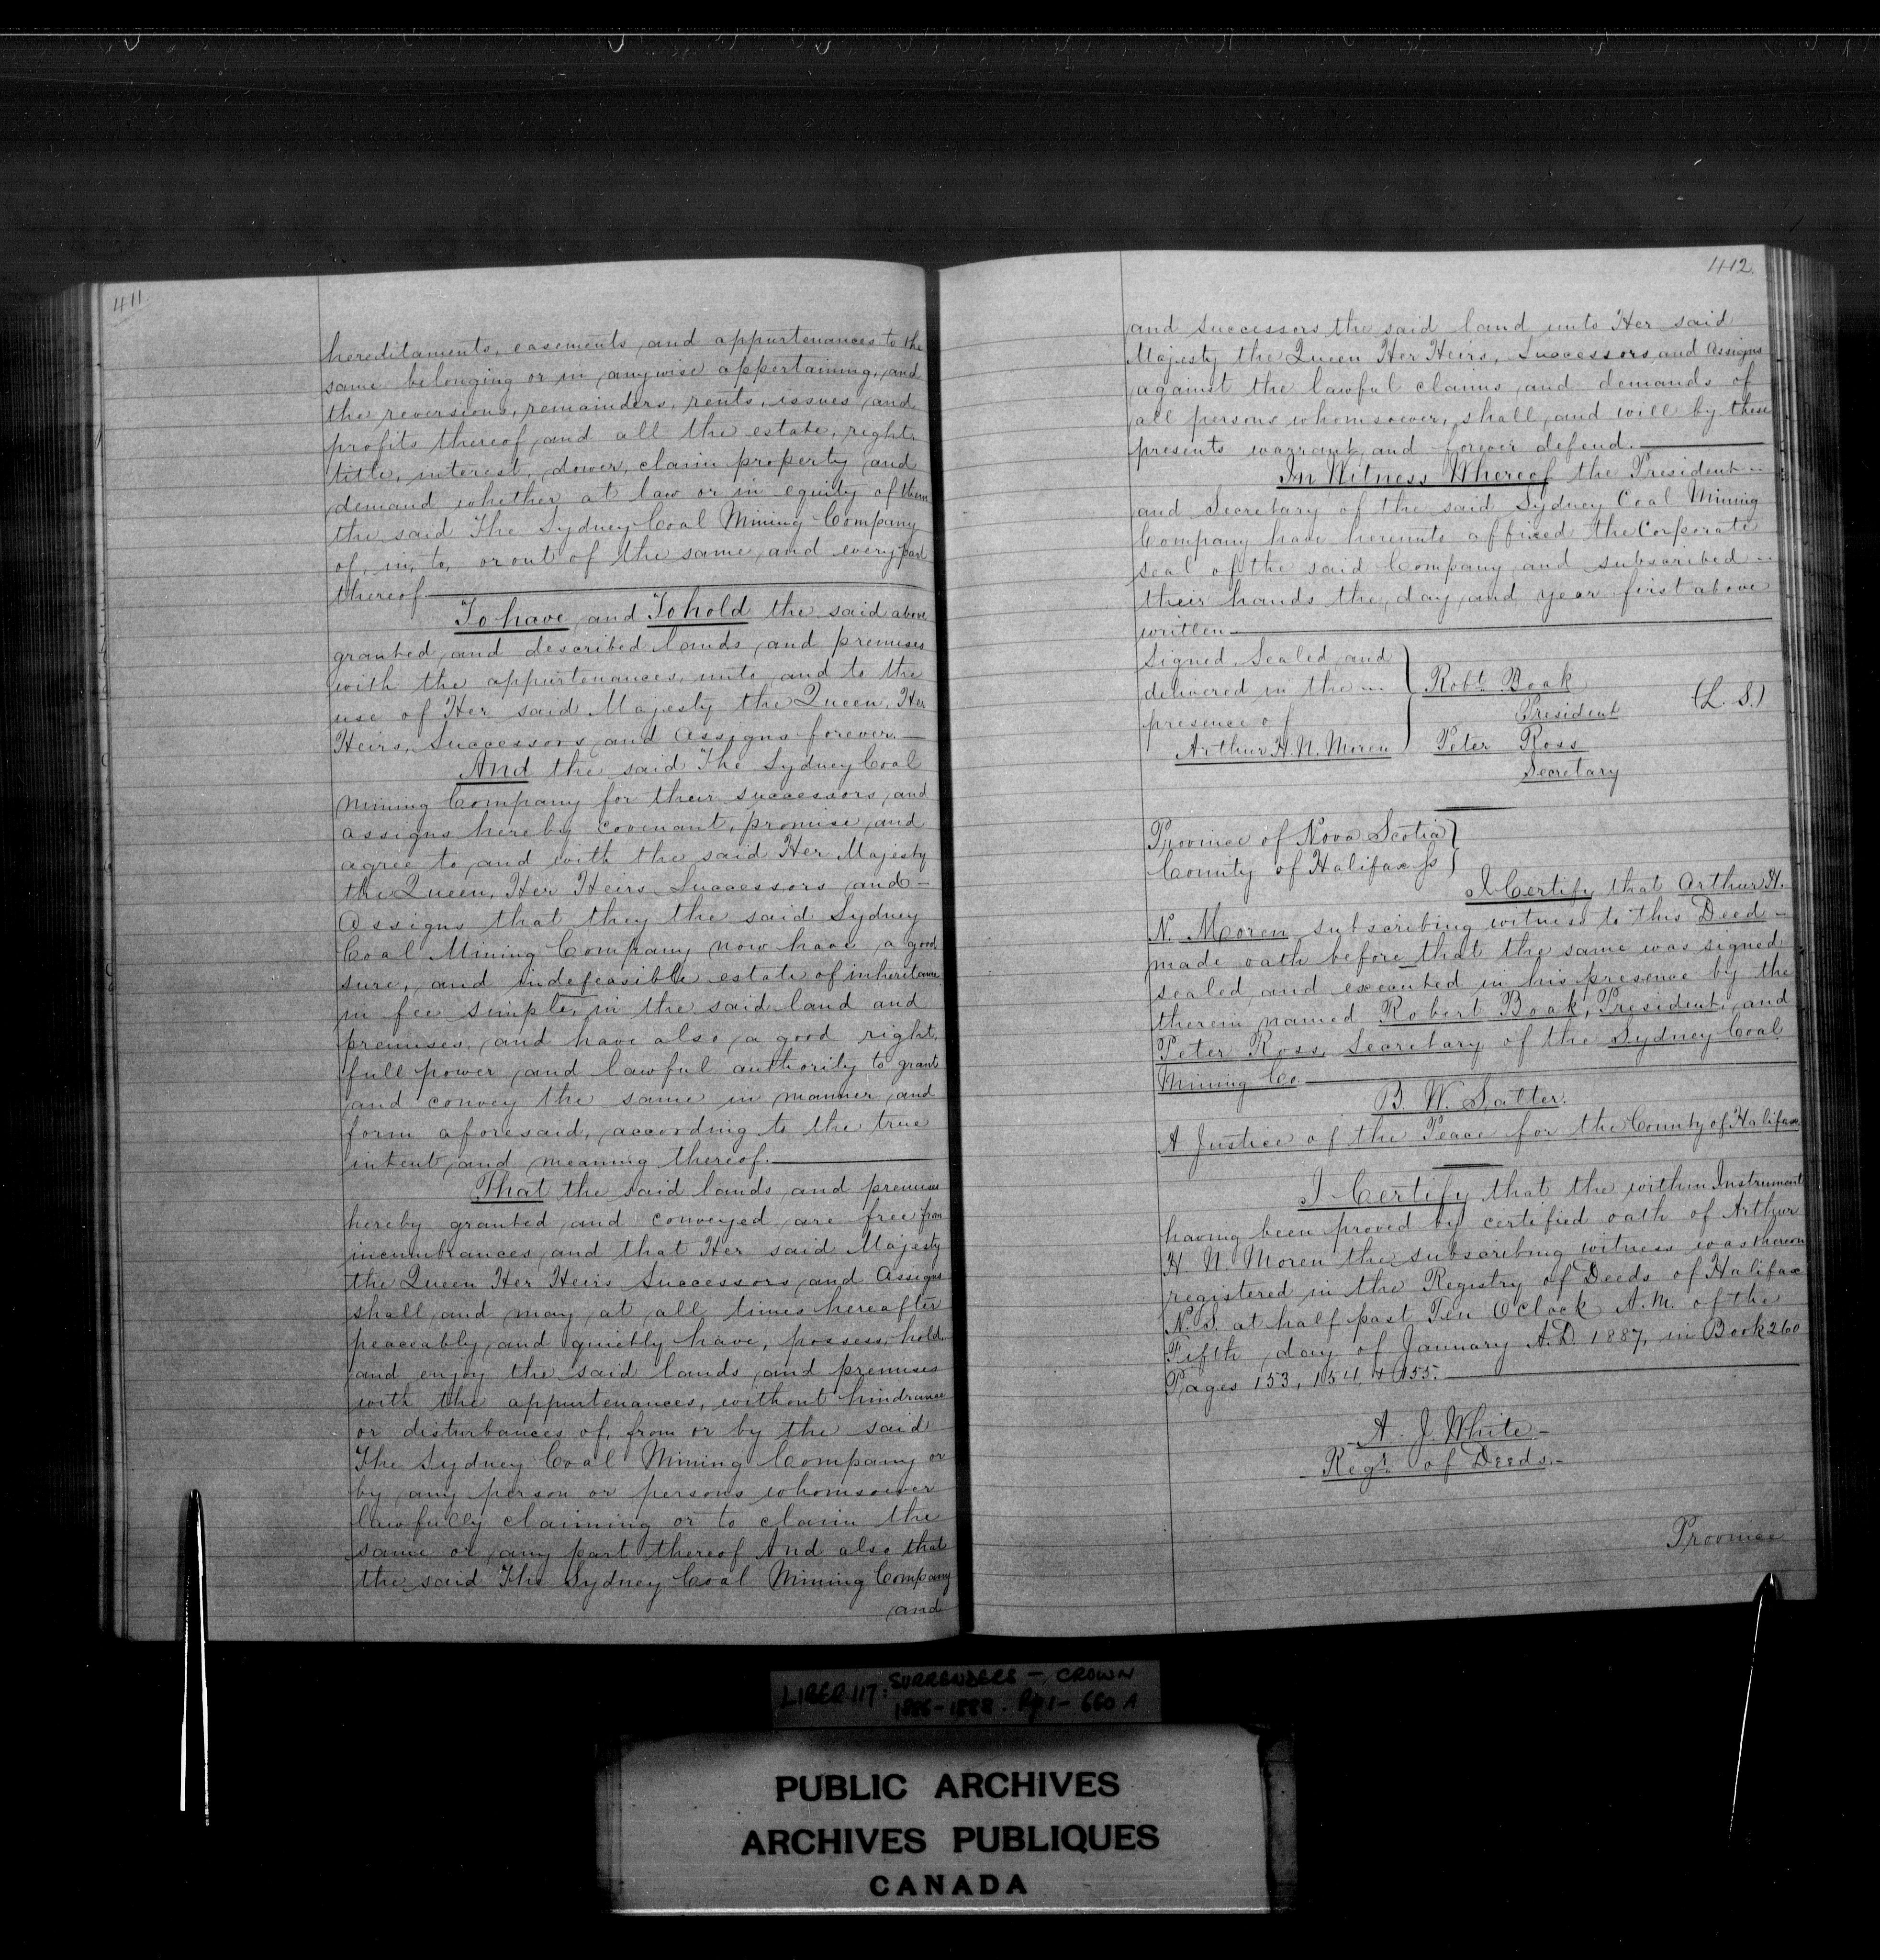 411
hereditaments, easements and appurtenances to the
same belonging or in anywise appertaining, and
the reversions, remainders, rents, issues and
profits thereof and all the estate, right,
title, interest, dower, claim property and
demand whether at law or in equity of them
the said The Sydney Coal Mining Company
of, in, to, or out of the same and every part
thereof
To have and To hold the said above
granted and described lands and premises
with the appurtenances, unto and to the
use of Her said Majesty the Queen, Her
Heirs, Successors and Assigns forever.
And the said The Sydney Coal
Mining Company for their successors and
assigns hereby covenant, promise and
agree to and with the said Her Majesty
the Queen, Her Heirs Successors and
Assigns that they the said Sydney
Coal Mining Company now have a good
sure, and indefeasible estate of inheritance
in fee simple, in the said land and
premises, and have also a good right,
full power and lawful authority to grant
and convey the same in manner and
form aforesaid, according to the true
intent and meaning thereof.
That the said lands and premises
hereby granted and conveyed are free from
incumbrances and that Her said Majesty
the Queen Her Heirs Successors and Assigns
shall and may at all times hereafter
peaceably and quietly have, possess, hold,
and enjoy the said lands and premises
with the appurtenances, without hindrance
or disturbances of, from or by the said
The Sydney Coal Mining Company or
by any person or persons whomsoever
lawfully claiming or to claim the
same or any part thereof And also that
the said The Sydney Coal Mining Company
and
412.
and successors the said land unto Her said
Majesty the Queen Her Heirs, Successors and Assigns
against the lawful claims and demands of
all persons whomsoever, shall and will by these
presents warrant and forever defend.
In Witness Whereof the President
and Secretary of the said Sydney Coal Mining
Company have hereunto affixed the Corporate
seal of the said Company and subscribed
their hands the day and year first above
written
Signed Sealed and
delivered in the
presence of
Arthur H. N. Moren
Robt. Boak
President
(L. S.)
Peter Ross
Secretary
Province of Nova Scotia
County of Halifax ss
I Certify that Arthur H.
N. Moren subscribing witness to this Deed
made oath before that the same was signed,
sealed and executed in his presence by the
therein named Robert Boak, President, and
Peter Ross, Secretary of the Sydney Coal
Mining Co.
B. W. Salter.
A Justice of the Peace for the County of Halifax
I Certify that the within Instrument
having been proved by certified oath of Arthur
H. N. Moren the subscribing witness was thereon
registered in the Registry of Deeds of Halifax
N.S. at half past Ten O'Clock A.M. of the
Fifth day of January A.D. 1887, in Book 260
Pages 153, 154 & 155.
A. J. White
Regr. of Deeds.
Province
LIBER 117: SURRENDERS - CROWN
1886-1888. Pp 1- 660 A
PUBLIC ARCHIVES
ARCHIVES PUBLIQUES
CANADA